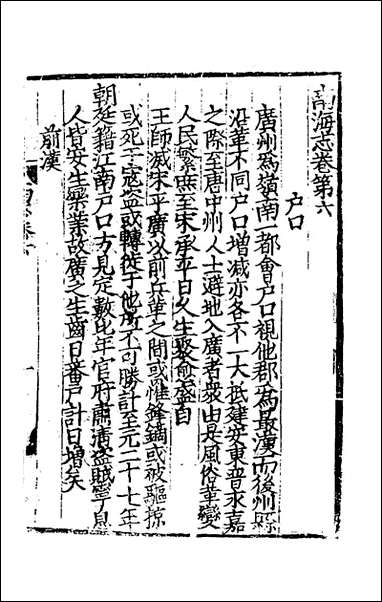 南海志卷第六
户口
廣州為嶺南一都會户口視他郡為最漢而後州縣
沿革不同户口增減亦各不一大抵建安東晉永嘉
之際至唐中州人士避地入廣者衆由是風俗革變
人民繁庶至宋承平日久生聚愈盛自
王師滅宋平廣以前兵革之間或罹鋒鏑或被驅掠
或死於寇盗或轉徙于他所不可勝計至元二十七年
朝廷籍江南户口方見定數比年官府肅清盗賊寧息
人皆安生樂業故廣之生齒日番户計日增矣
前漢